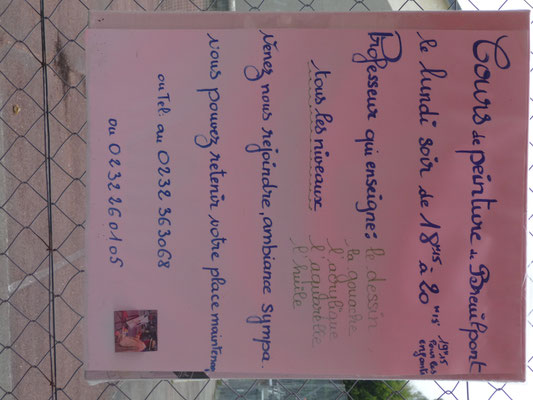 Cours de peinture de Breuilpont
le lundi soir de 18H45 à 20H15
19H45 Pour les enfants
Professeur qui enseigne: le dessin,
la gouache
l'acrylique
l'aquarelle
l'huile
tous les niveaux
venez nous rejoindre, ambiance sympa.
vous pouvez retenir votre place maintenant,
ou Tel. au 0232 363068
ou 0232260105